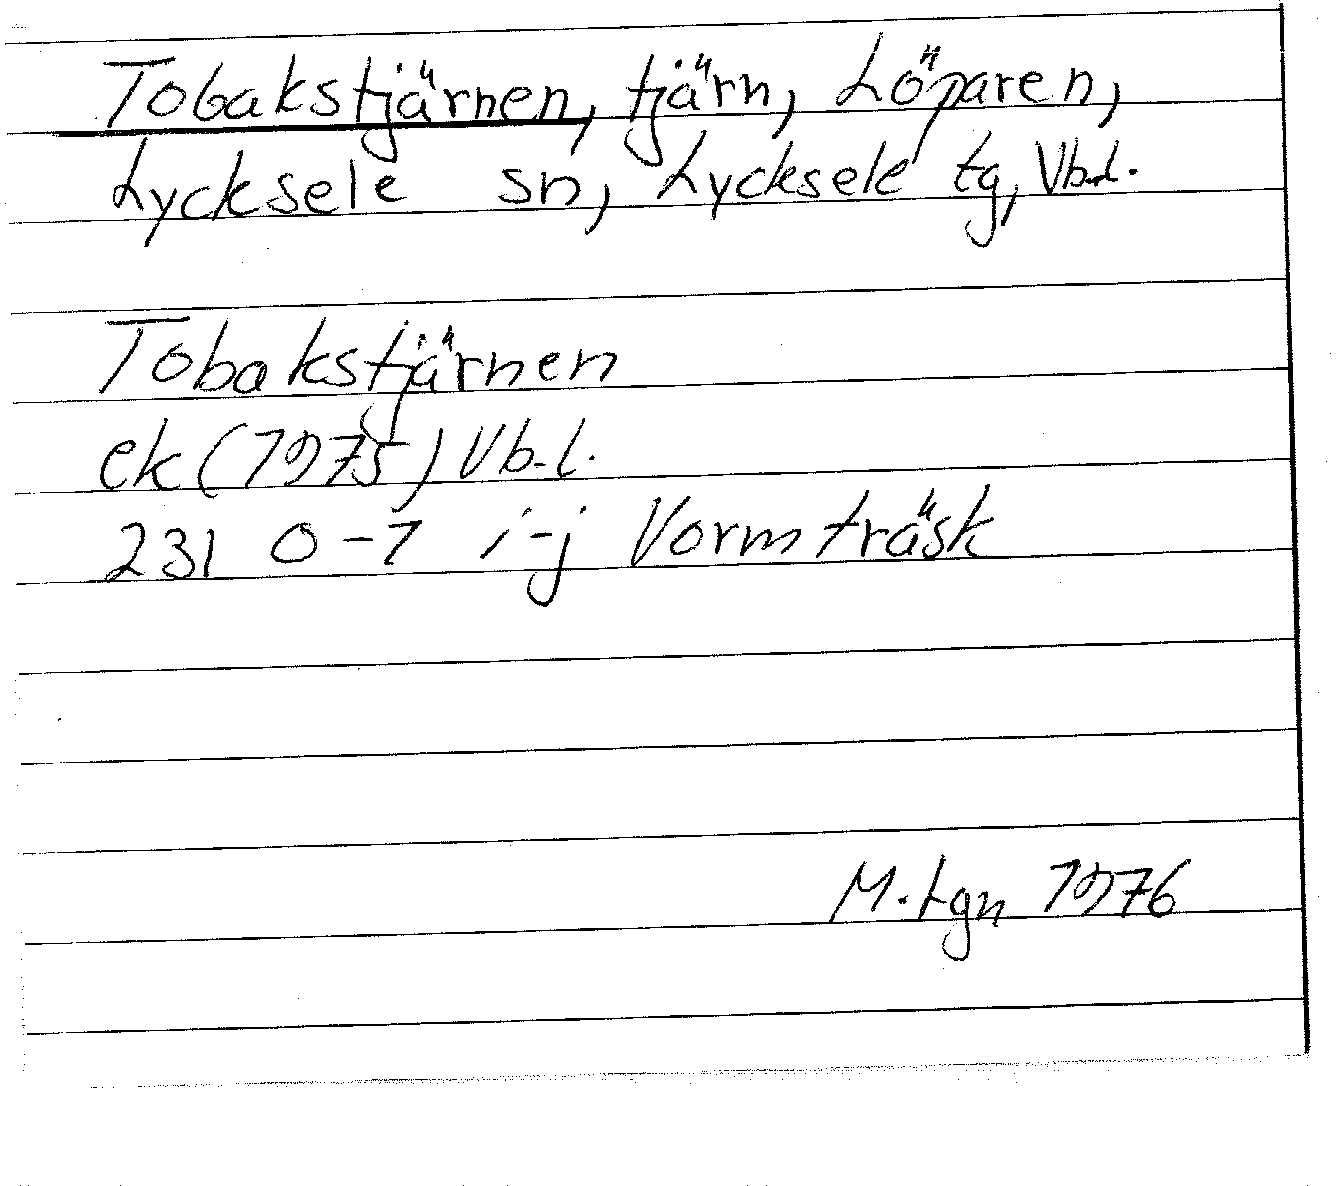 Tobakstjärnen, tjärn, Löparen,
Lycksele sn, Lycksele tg, Vb.l.
Tobakstjärnen
ek (1975) Vb.l.
231 0-1 i-j Vormträsk
M.Lgn 1976